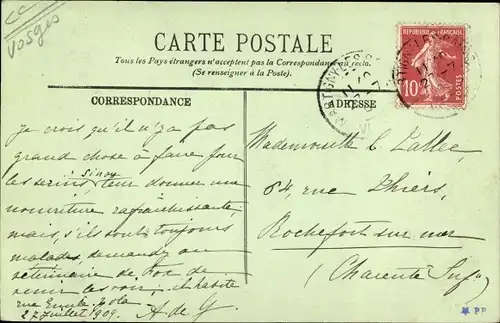 Vosges
CARTE POSTALE
Tous les Pays étrangers n'acceptent pas la Correspondance au recto.
(Se renseigner à la Poste).
REPUBLIQUE FRANÇAISE
10
POSTES
CORRESPONDANCE
ADRESSE
je crois qu'il n'y a pas
grand chose à faire pour
les serins sinon leur donner une
nourriture rafraichissante,
mais, s'ils sont toujours
malades, demandez au
vétérinaire de Roc de
venir les voir. il habite
rue Emile Zola
27 juillet 1909. A de G.
Mademoiselle L Vallée
64, rue Thiers,
Rochefort sur mer
(Charente Infre)
PP